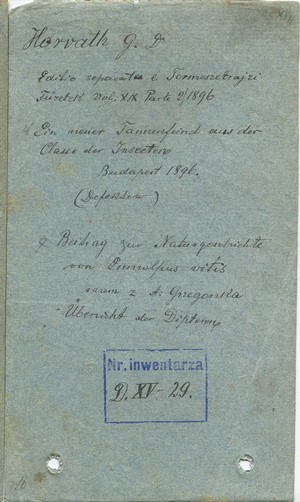 Horváth G. Dr
Editio separata e Termeszetrajzi
Füzetek Vol. XIX Parte 2/1896
Ein neuer Tannenfeind aus der
Classe der Insecten
Budapest 1896.
Beitrag zur Naturgeschichte
von Eumolpus vitis
razem z A:
Übersicht der Dipteren
Nr. inwentarza
D. XV - 29.
16